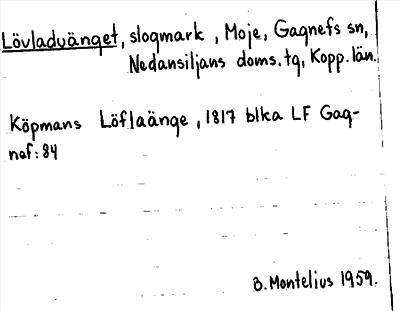 Lövladvänget, slogmark, Moje, Gagnefs sn,
Nedansiljans doms. tg, Kopp. län.
Köpmans Löflaänge, 1817 blka LF Gag-
nef: 84
B. Montelius 1959.